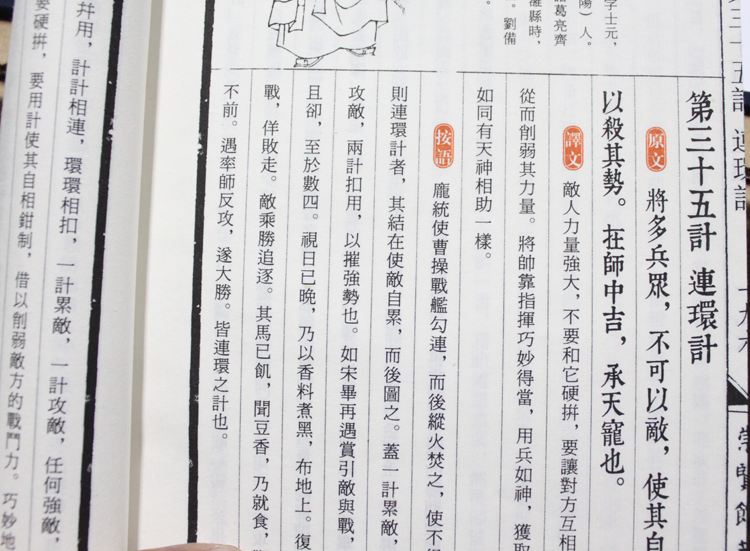 三十五計 連環計
字士元，
陽）人。
諸葛亮齊
雒縣時，
。劉備
第三十五計 連環計
原文 將多兵眾，不可以敵，使其自
以殺其勢。在師中吉，承天寵也。
譯文 敵人力量強大，不要和它硬拚，要讓對方互相
從而削弱其力量。將帥靠指揮巧妙得當，用兵如神，獲取
如同有天神相助一樣。
按語 龐統使曹操戰艦勾連，而後縱火焚之，使不得
則連環計者，其結在使敵自累，而後圖之。蓋一計累敵，
攻敵，兩計扣用，以摧強勢也。如宋畢再遇賞引敵與戰，
且卻，至於數四。視日已晚，乃以香料煮黑，布地上。復
戰，佯敗走。敵乘勝追逐。其馬已飢，聞豆香，乃就食，
不前。遇率師反攻，遂大勝。皆連環之計也。
幷用，計計相連，環環相扣，一計累敵，一計攻敵，任何強敵，
要硬拚，要用計使其自相鉗制，借以削弱敵方的戰鬥力。巧妙地